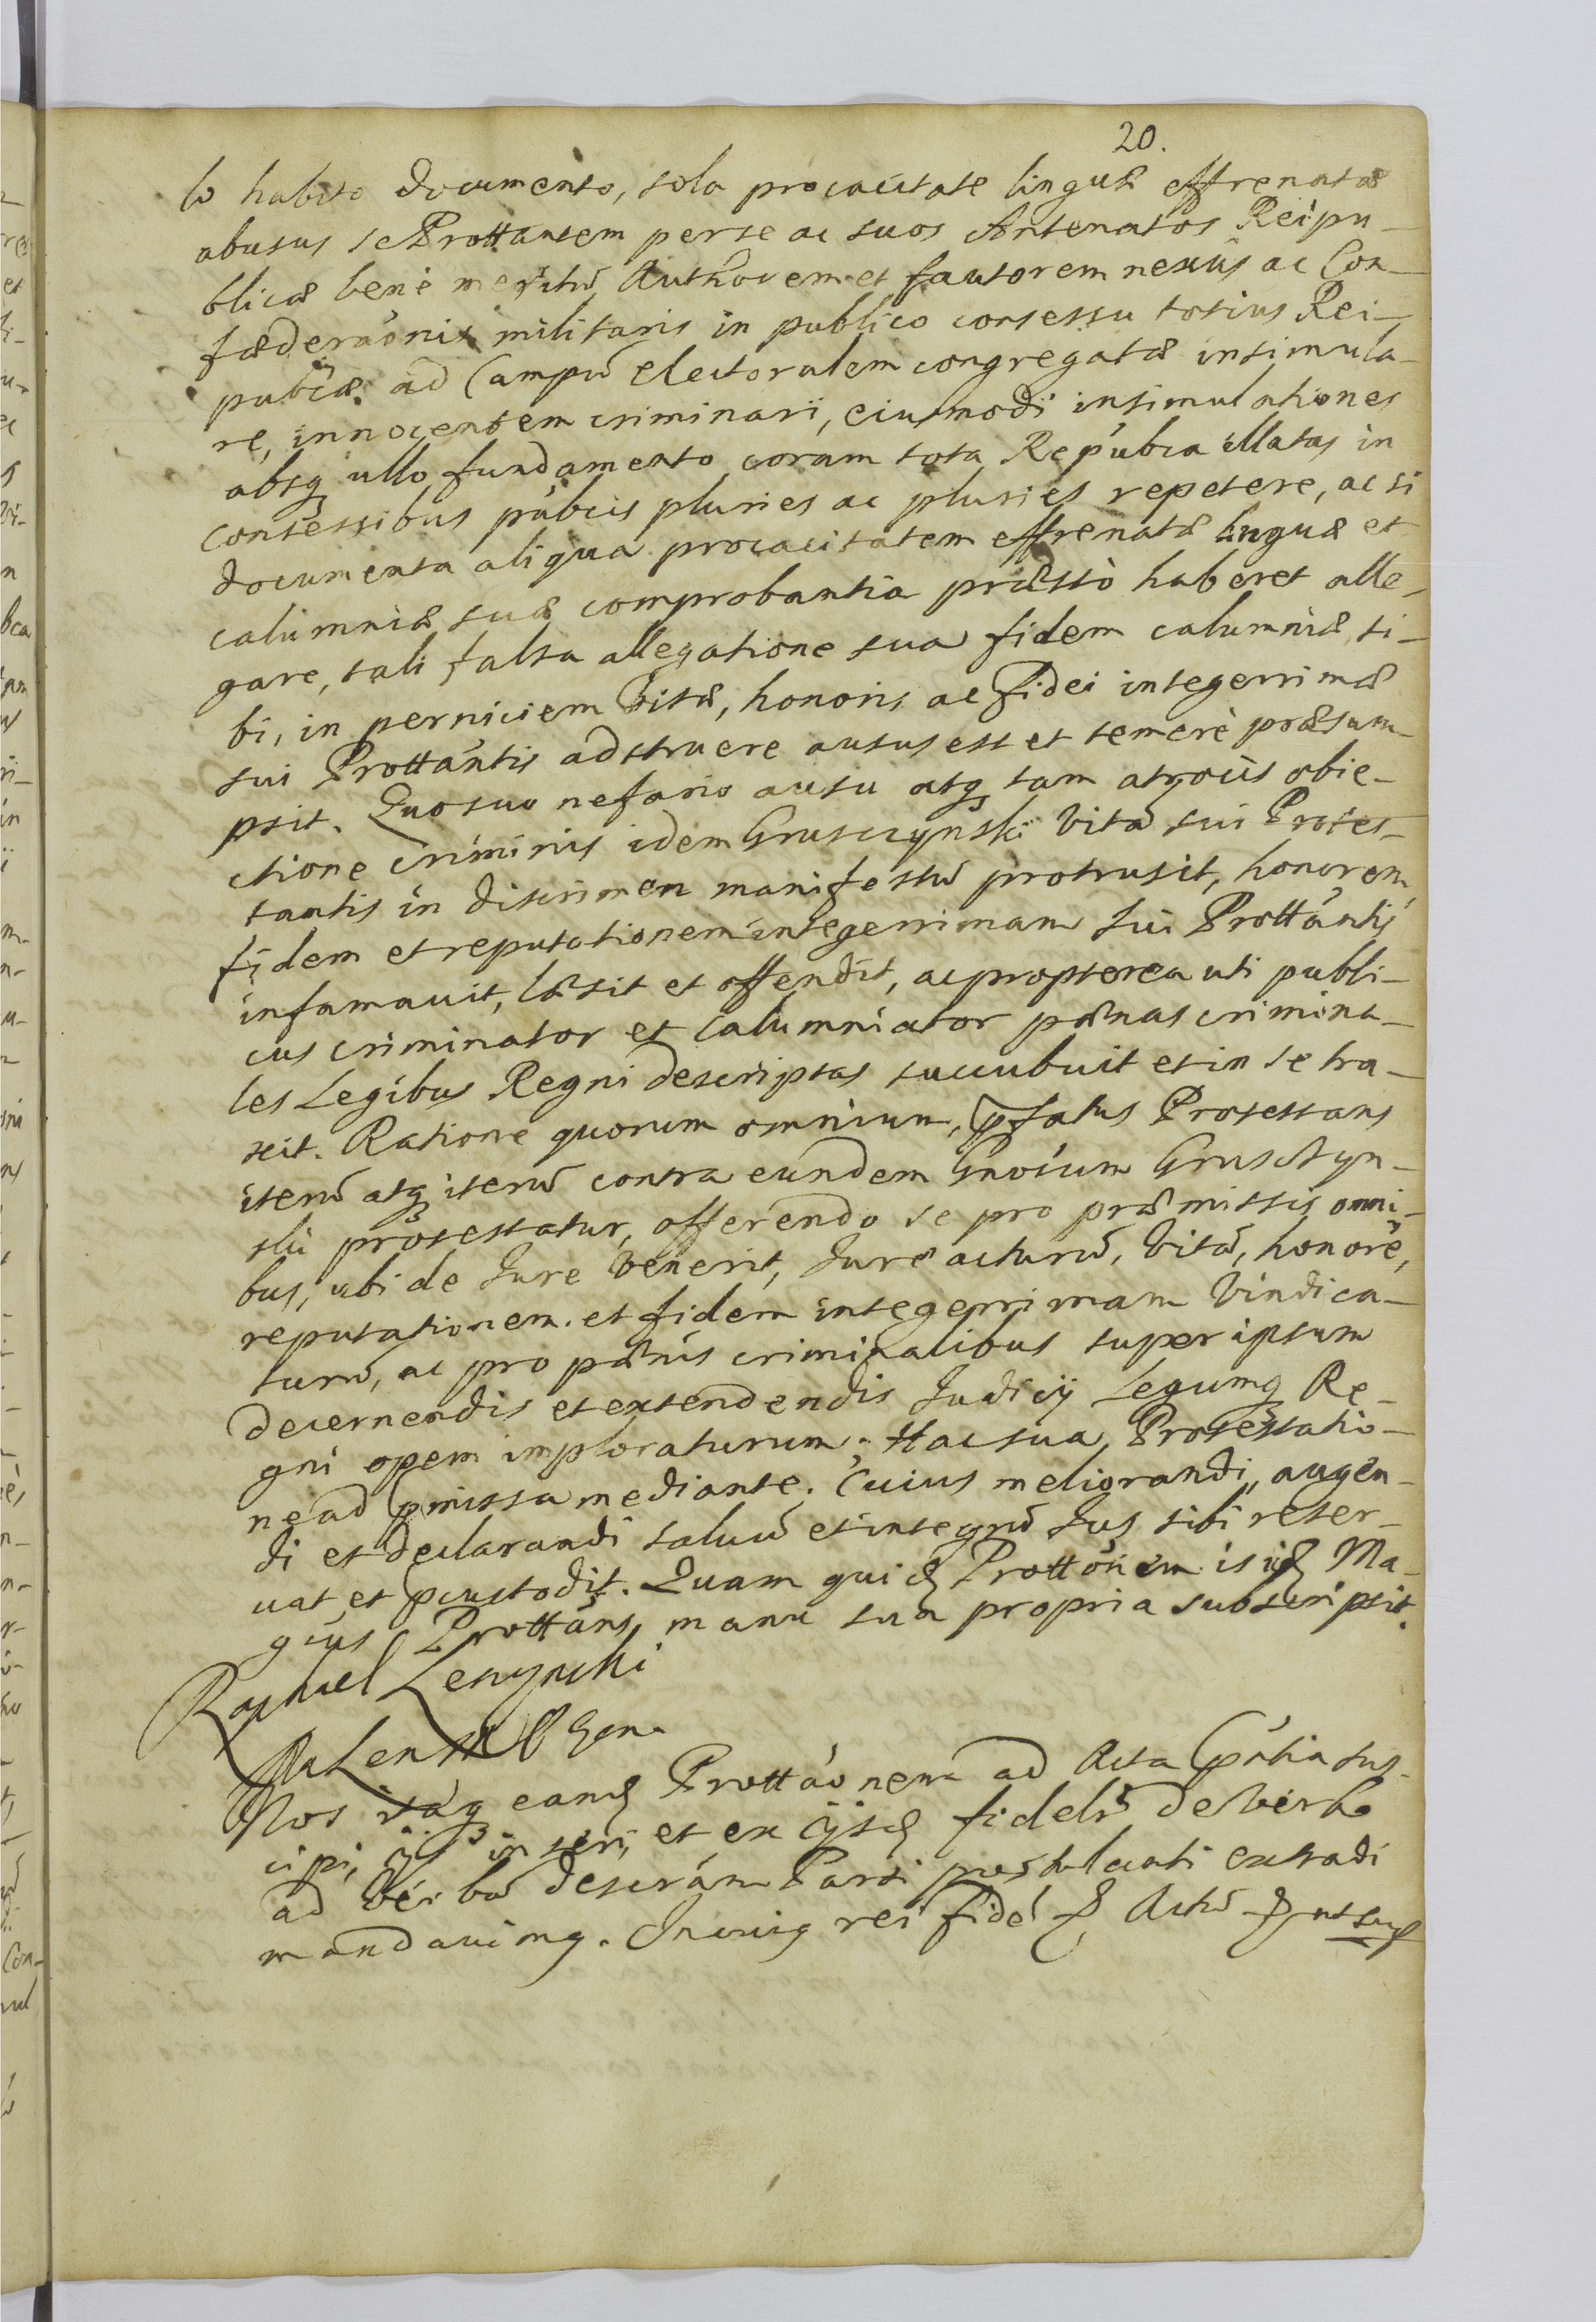 20.
lo habito documento, sola procacitate linguæ effrenatæ
abusus se Prottantem per se ac suos Antenatos Reipu-
blicæ bene meritū Authorem et fautorem nexus ac Con-
fæderaōnis militaris in publico consessu totius Rei-
pub͠cæ ad Campū Electoralem congregatæ insimula-
re, innocentem criminari, eiusmodi insimulationes
absq ullo fundamento coram tota Repub͠ca illatas in
consessibus pub͠cis pluries ac pluries repetere, ac si
documenta aliqua procacitatem effrenatæ linguæ et
calumniæ suæ comprobantia præsto haberet alle-
gare, tali falsa allegatione sua fidem calumniæ si-
bi, in perniciem vitæ, honoris ac Fidei integerrimæ
sui Prottantis adstruere ausus est et temerè præsum-
psit. Quo suo nefario ausu atq tam atrocis obie-
ctione criminis idem Grusczynski vitā sui Protes-
tantis in discrimen manifestū protrusit, honorem,
fidem et reputationem integerrimam sui Prottantis
infamavit, læsit et offendit, ac propterea uti publi-
cus criminator et calumniator pœnas crimina-
les Legibus Regni descriptas succubuit et in se tra-
xit. Ratione quorum omnium, pfatus Protestans
iterū atq iterū contra eundem Gnosum Grusczyn-
ski protestatur, offerendo se pro præmissis omni-
bus, ubi de Jure venerit, Jure acturū, vitā, honorē,
reputationem et fidem integerrimam vindica-
turū, ac pro pœnis criminalibus super ipsum
decernendis et extendendis Judicij Legumq Re-
gni opem imploraturum; Hac sua Protestatio-
ne ad pmissa mediante. Cuius meliorandi, augen-
di et declarandi salvū et integrū Jus sibi reser-
uat et pcustodit. Quam quidē Prottōnem is idē Ma-
gcus Prottans manu sua propria subscripsit.
Raphael Leszynski
Nos itaq eandē Prottaōnem ad Acta pntia sus-
cipi, ijs inseri, et ex ijsdē fidelr̄ de verbo
ad verbū descr̄am Parti postulanti extradi
mandavimq. In cuiq rei fidē Actū ut supra